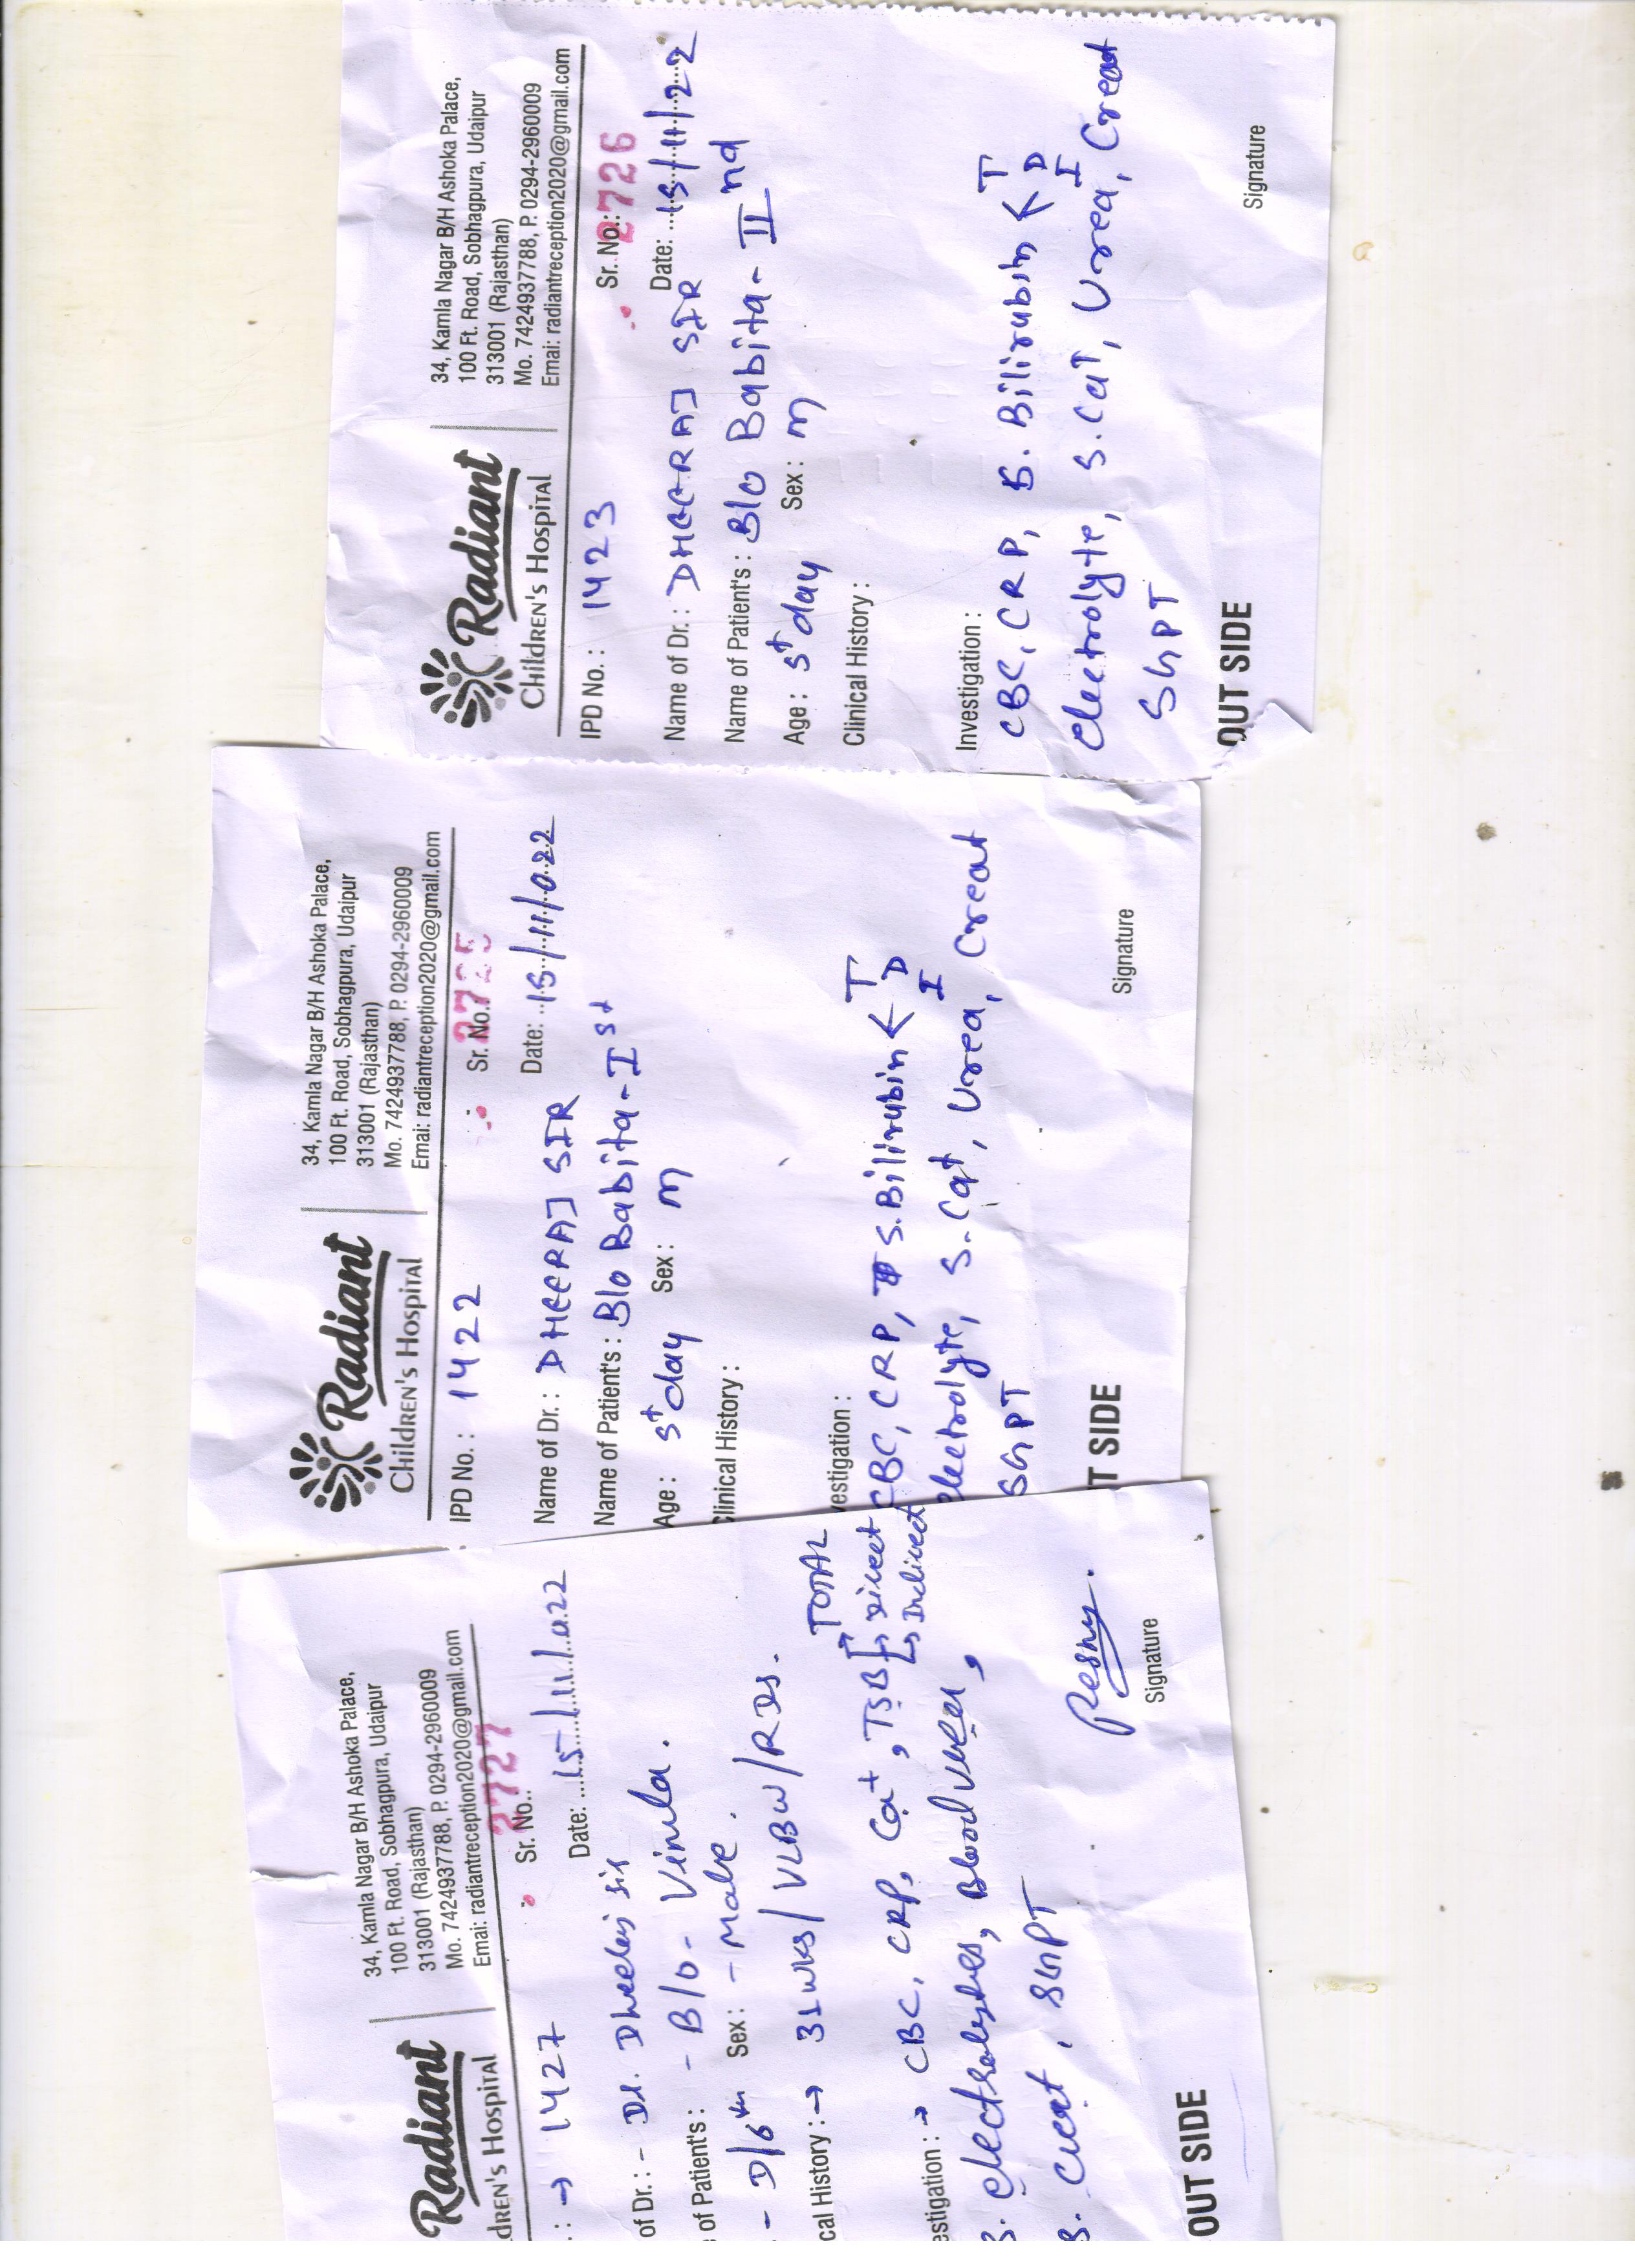 Radiant
CHILDREN's HOSPITAL
34, Kamla Nagar B/H Ashoka Palace,
100 Ft. Road, Sobhagpura, Udaipur
313001 (Rajasthan)
Mo. 7424937788, P. 0294-2960009
Emai: radiantreception2020@gmail.com
IPD No. : 1423
Sr. No.: 2726
Name of Dr. : DHEERAJ SIR
Date: 15/11/22
Name of Patient's : B/O Babita - IInd
Age : 5t day Sex : M
Clinical History :
Investigation :
CBC, CRP, S. Bilirubin < T D I
Electrolyte, S. Cat, Urea, Creat
SGPT
OUT SIDE
Signature
Radiant
CHILDREN's HOSPITAL
34, Kamla Nagar B/H Ashoka Palace,
100 Ft. Road, Sobhagpura, Udaipur
313001 (Rajasthan)
Mo. 7424937788, P. 0294-2960009
Emai: radiantreception2020@gmail.com
IPD No. : 1422
Sr. No.: 2725
Name of Dr. : DHEERAJ SIR
Date: 15/11/022
Name of Patient's : B/O Babita - Ist
Age : 5t day Sex : M
Clinical History :
vestigation :
CBC, CRP, S. Bilirubin < T D I
Electrolyte, S. Cat, Urea, Creat
SGPT
T SIDE
Signature
Radiant
DREN's HOSPITAL
34, Kamla Nagar B/H Ashoka Palace,
100 Ft. Road, Sobhagpura, Udaipur
313001 (Rajasthan)
Mo. 7424937788, P. 0294-2960009
Emai: radiantreception2020@gmail.com
.: → 1427
Sr. No.. 2727
of Dr. : - Dr. Dheeraj sir
Date: 15/11/022
of Patient's : - B/O - Vimla.
- D/6th Sex : - Male.
cal History : → 31 wks / VLBW / RDS.
estigation : → CBC, CRP, Ca+, TSB [→ TOTAL → Direct → Indirect
S. electrolytes, Blood urea,
S. creat, SGPT
OUT SIDE
Signature